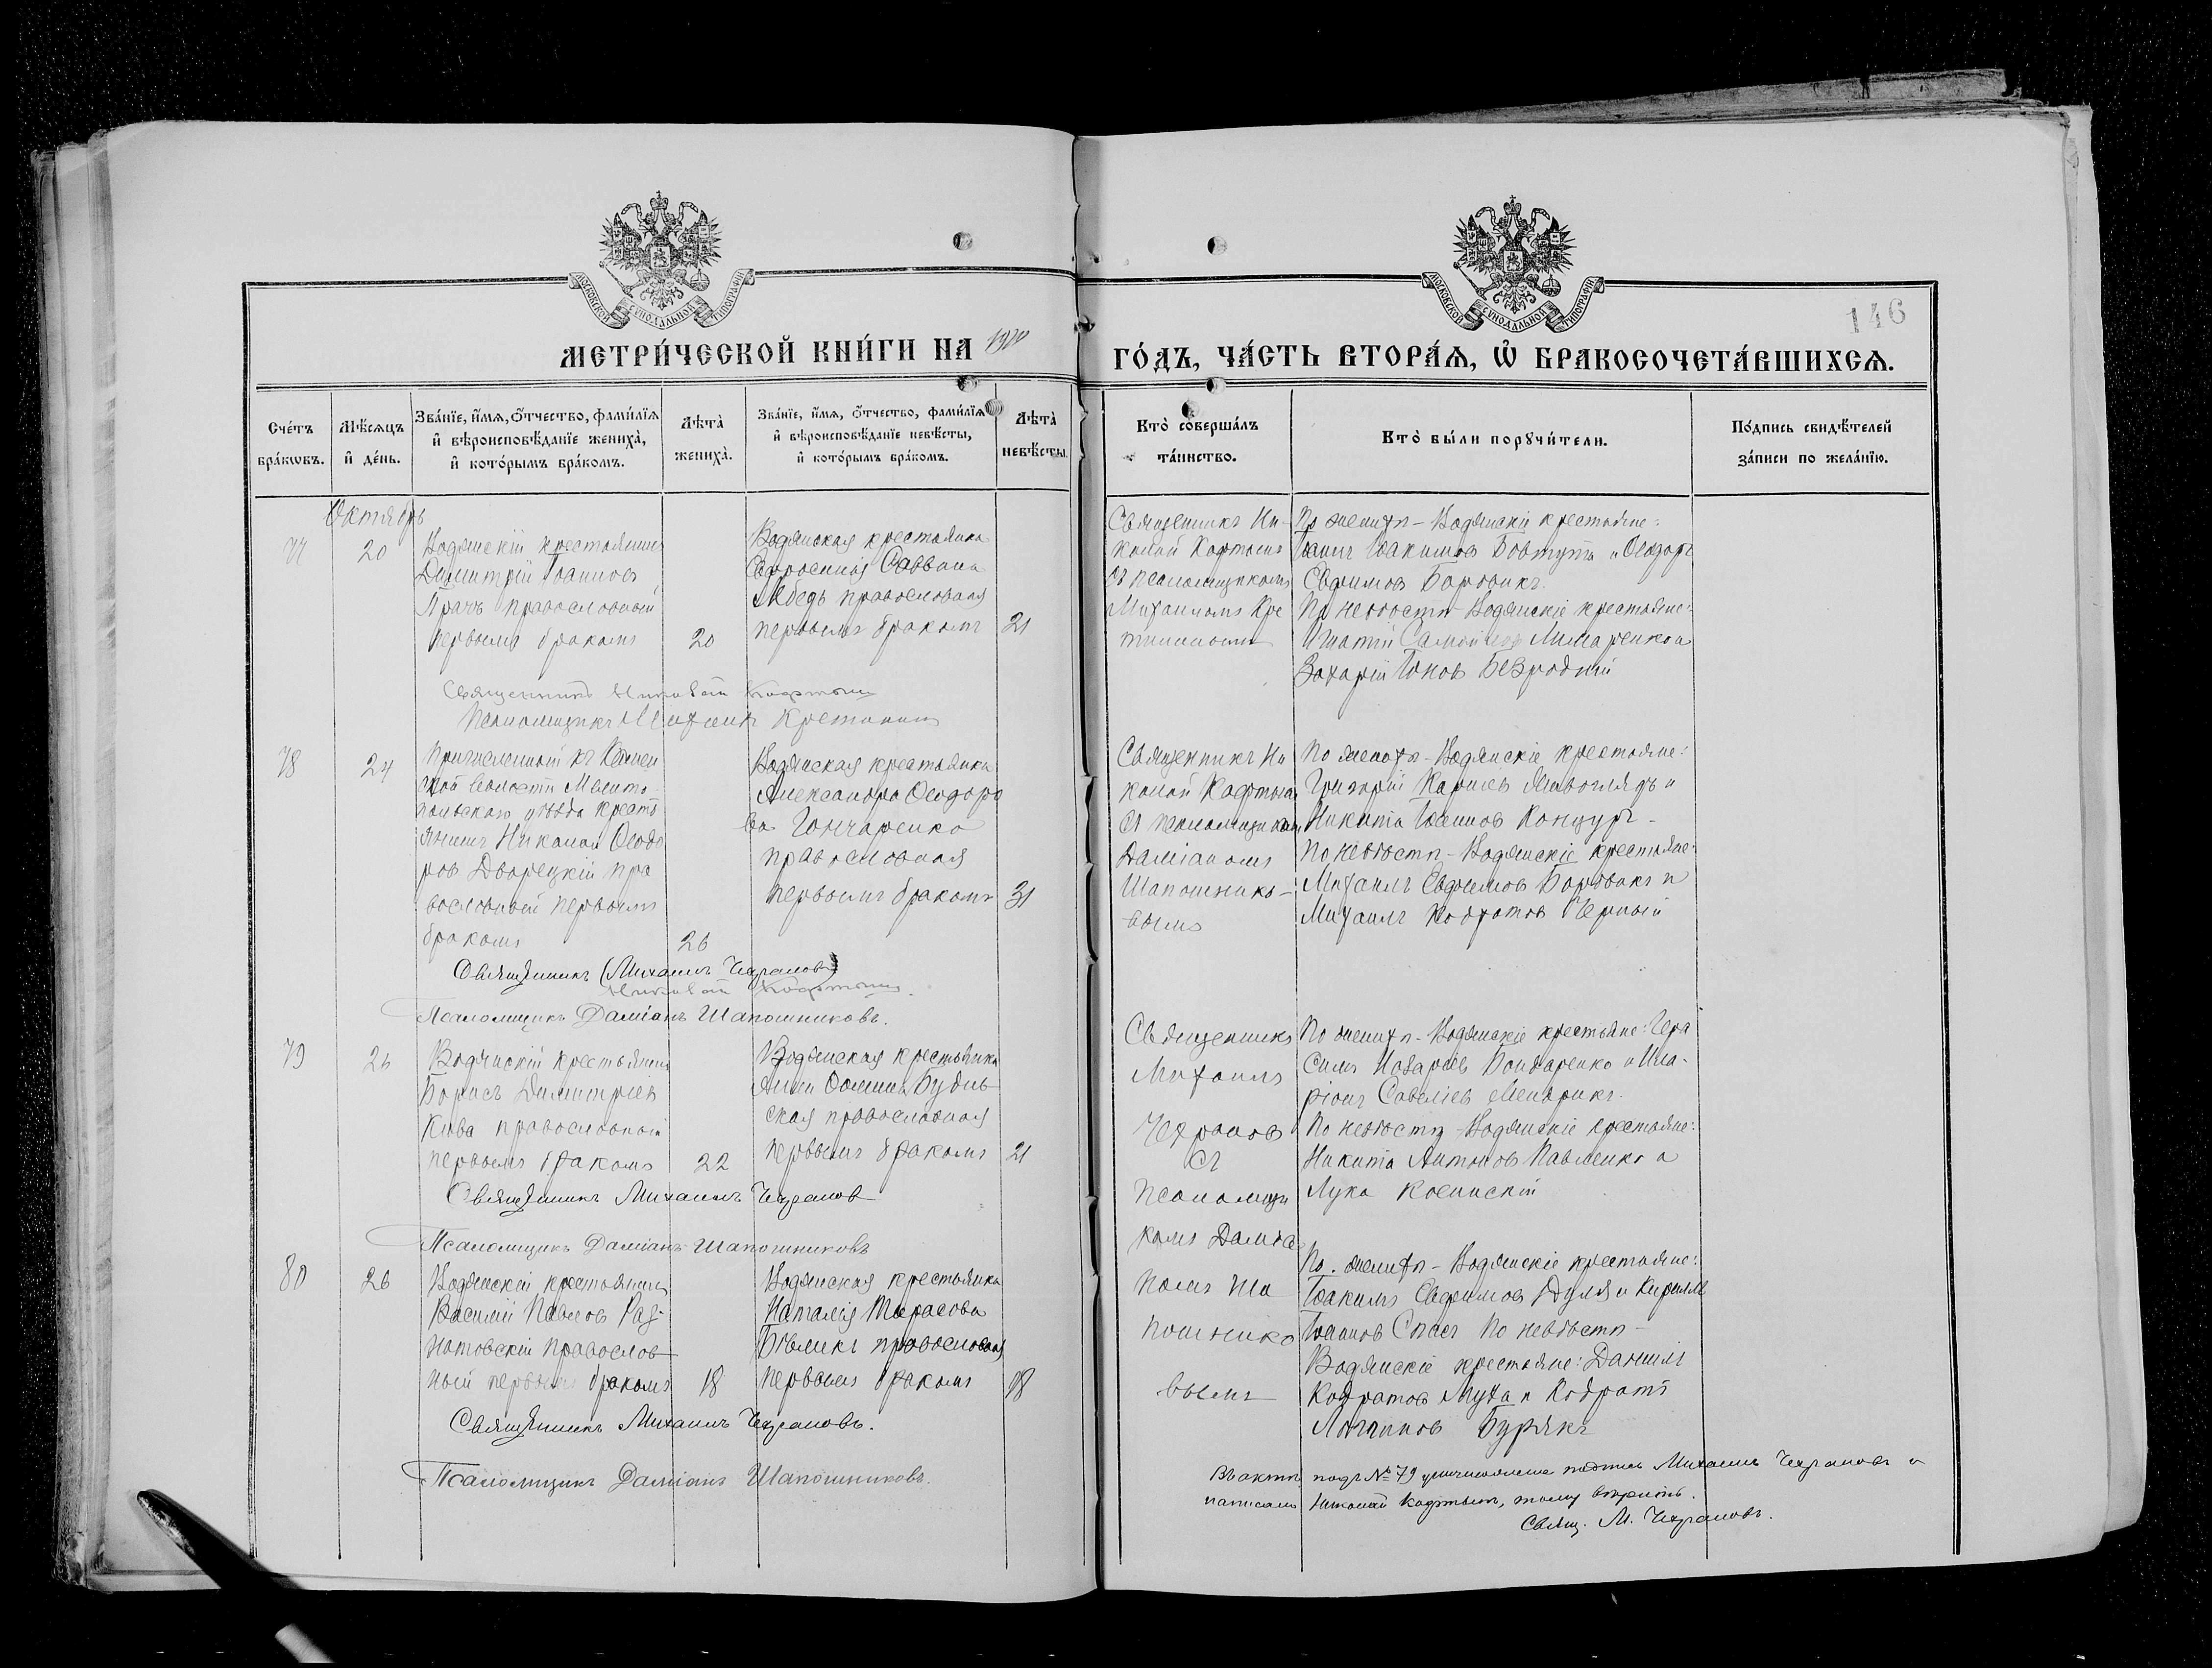 МОСКОВСКОЙ СУНОДАЛЬНОЙ ТИПОГРАФИИ
МОСКОВСКОЙ СУНОДАЛЬНОЙ ТИПОГРАФИИ
146
МЕТРИ́ЧЕСКОЙ КНИ́ГИ НА 1910
ГО́ДЪ, ЧА́СТЬ ВТОРА́Я, Ѡ҆ БРАКОСОЧЕТА́ВШИХСЯ.
Сче́тъ бра́кѡвъ.
Мѣ́сяцъ и҆ де́нь.
Зва́нїе, и҆́мя, ѻ҆́тчество, фами́лїя
и҆ вѣроисповѣ́данїе жениха̀,
и҆ кото́рымъ бра́комъ.
Лѣта̀ жениха̀.
Зва́нїе, и҆́мя, ѻ҆́тчество, фами́лїя
и҆ вѣроисповѣ́данїе невѣ́сты,
и҆ кото́рымъ бра́комъ.
Лѣта̀ невѣ́сты.
Кто̀ соверша́лъ
та́инство.
Кто̀ бы́ли порꙋчи́тели.
По́дпись свидѣ́телей
за́писи по жела́нїю.
Октябрь
77
20
Водянскій крестьянинъ
Димитрій Іоанновъ
Прачъ православный
первымъ бракомъ
20
Водянская крестьянка
Саввина
Лебедь православная
первымъ бракомъ
21
Священникъ Ни-
колай Кафтынъ
съ псаломщикомъ
Михаиломъ Кре
По женихѣ - Водянскіе крестьяне:
Іоаннъ Іоакимовъ Бовтутъ и Ѳеодоръ
Евфимовъ Боровикъ.
По невѣстѣ Водянскіе крестьяне:
Игнатій Лимаренко и
Захарій Іоновъ Безродній
Священникъ Николай Кафтынъ
Псаломщикъ Михаилъ
78
24
Причисленный къ
ской волости Мелито-
польскаго уѣзда кресть
янинъ Николай Ѳеодо
ровъ Дворецкій пра
вославный первымъ
бракомъ
26
Водянская крестьянка
Александра Ѳеодоро
ва Гончаренко
православная
первымъ бракомъ
31
Священникъ Ни
колай Кафтынъ
съ псаломщикомъ
Даміаномъ
Шапошнико-
вымъ
По женихѣ - Водянскіе крестьяне:
Григорій Карповъ и
Никита Іоанновъ Канцуръ -
По невѣстѣ - Водянскіе крестьяне:
Михаилъ Евфимовъ Боровикъ и
Михаилъ Кодратовъ Черный
Священникъ (Михаилъ Чеграновъ)
Николай Кафтынъ.
Псаломщикъ Даміанъ Шапошниковъ.
79
26
Водянскій крестьянинъ
Борисъ Димитріевъ
Кива православный
первымъ бракомъ
22
Водянская крестьянка
Анна Ѳомина Будив
ская православная
первымъ бракомъ
21
Священникъ
Михаилъ
Чеграновъ
съ
псаломщи
комъ Даміа
номъ Ша
пошнико
вымъ
По женихѣ - Водянскіе крестьяне: Гера
симъ Назаріевъ Бондаренко и Ила-
ріонъ Савеліевъ
По невѣстѣ - Водянскіе крестьяне:
Никита Антоновъ Павленко и
Лука
Священникъ Михаилъ Чеграновъ
Псаломщикъ Даміанъ Шапошниковъ
80
26
Водянскій крестьянинъ
Василій Павловъ Раз-
натовскій православ
ный первымъ бракомъ
18
Водянская крестьянка
Наталія Тарасова
Бѣликъ православная
первымъ бракомъ
18
По женихѣ - Водянскіе крестьяне:
Іоакимъ Евфимовъ Дуля и Кириллъ
Іоанновъ Спасъ По невѣстѣ -
Водянскіе крестьяне: Даніилъ
Кодратовъ Муха и Кодратъ
Логгиновъ Бурякъ
Священникъ Михаилъ Чеграновъ.
Псаломщикъ Даміанъ Шапошниковъ.
Въ актѣ подъ № 79 подпись Михаилъ Чеграновъ и
написано Николай Кафтынъ, тому вѣрить.
Свящ. М. Чеграновъ.